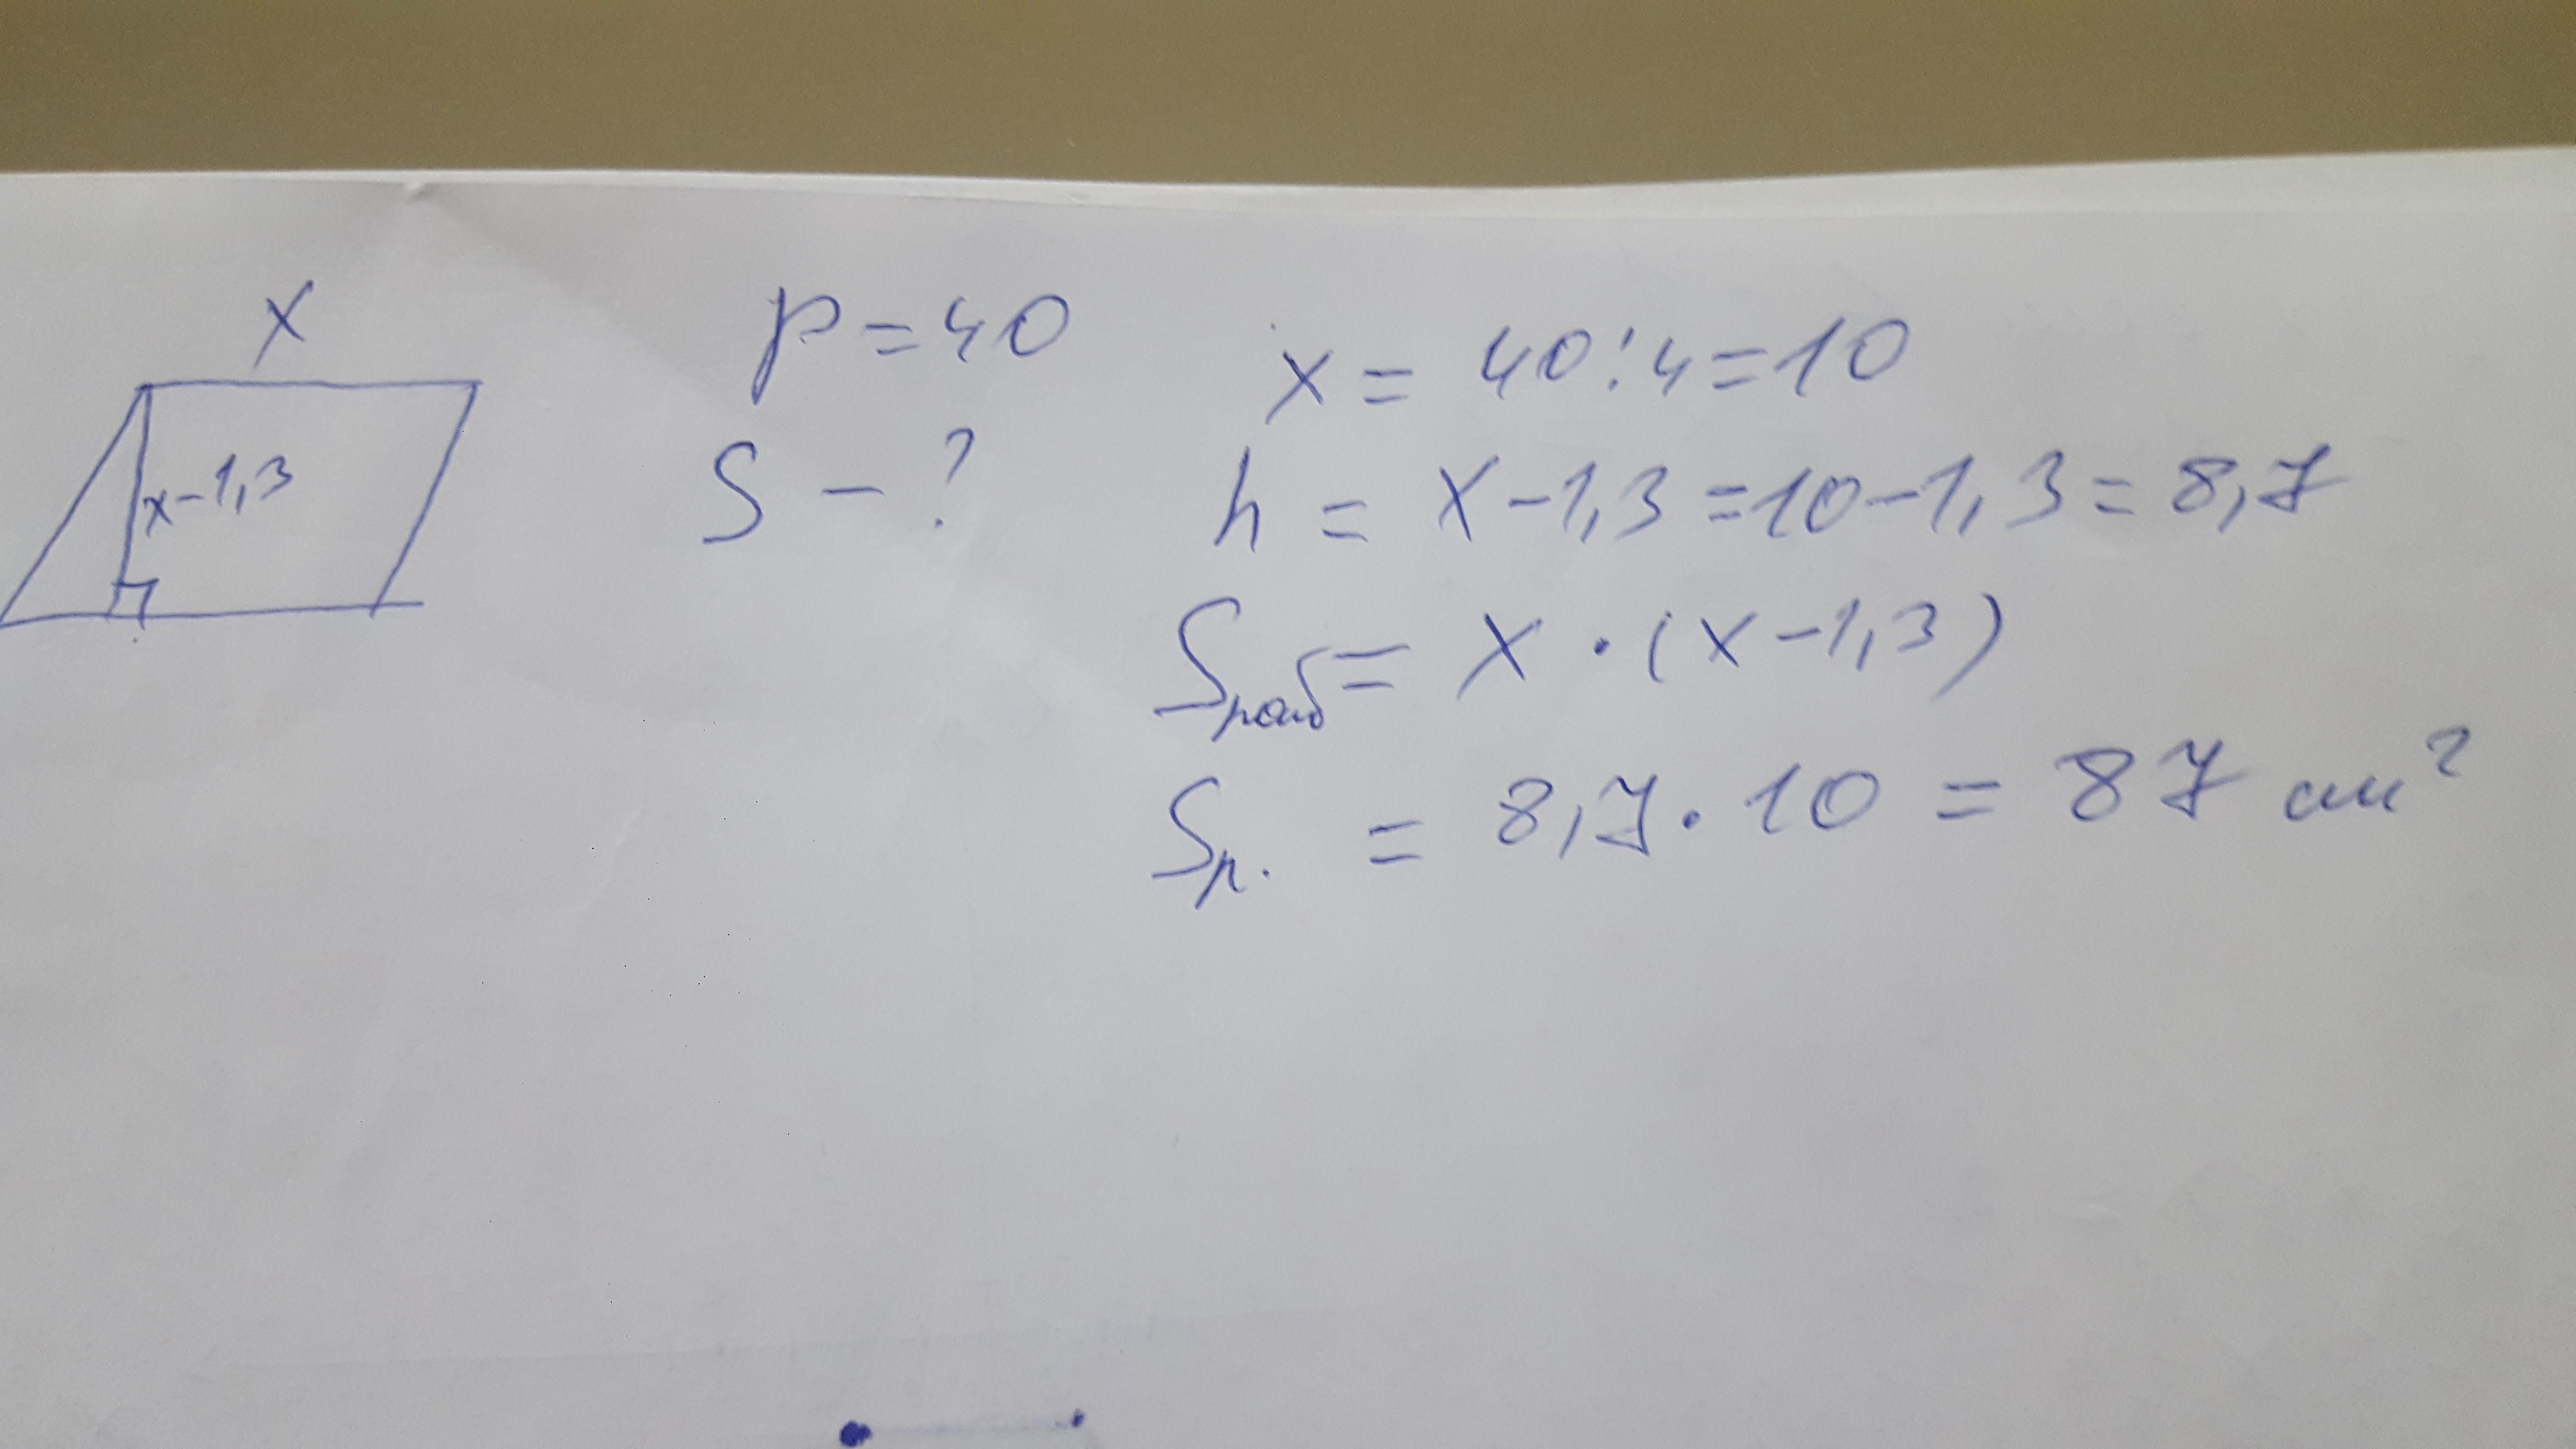 x
x-1,3
p=40
S-?
x = 40:4=10
h = x-1,3 =10-1,3 = 8,7
Sромб = x · (x-1,3)
Sр. = 8,7 · 10 = 87 см²